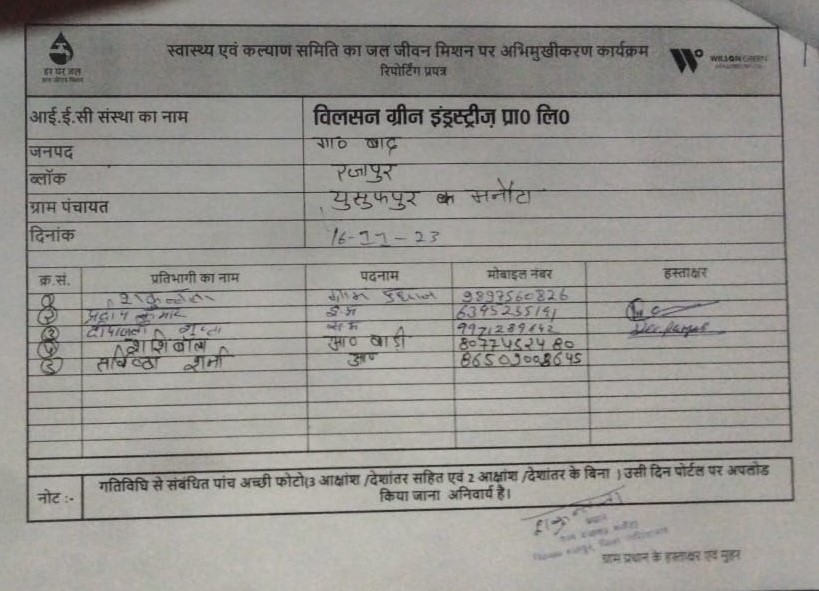 हर घर जल
जल जीवन मिशन
स्वास्थ्य एवं कल्याण समिति का जल जीवन मिशन पर अभिमुखीकरण कार्यक्रम
रिपोर्टिंग प्रपत्र
WILSON GREEN
आई.ई.सी संस्था का नाम विलसन ग्रीन इंड्रस्ट्रीज़ प्रा0 लि0
जनपद गा0 बाद
ब्लॉक रजापुर
ग्राम पंचायत युसुफपुर क मनौटा
दिनांक 16-11-23
क्र.सं. प्रतिभागी का नाम पदनाम मोबाइल नंबर हस्ताक्षर
① शकुन्तला ग्राम प्रधान 9897560826
② कुमार
③ गुप्ता
④ शशिबाला आ0 बाडी 8077452480
⑤ शर्मा आ0
नोट :- गतिविधि से संबंधित पांच अच्छी फोटो(3 आक्षांश /देशांतर सहित एवं 2 आक्षांश /देशांतर के बिना ) उसी दिन पोर्टल पर अपलोड
किया जाना अनिवार्य है।
ग्राम प्रधान के हस्ताक्षर एवं मुहर